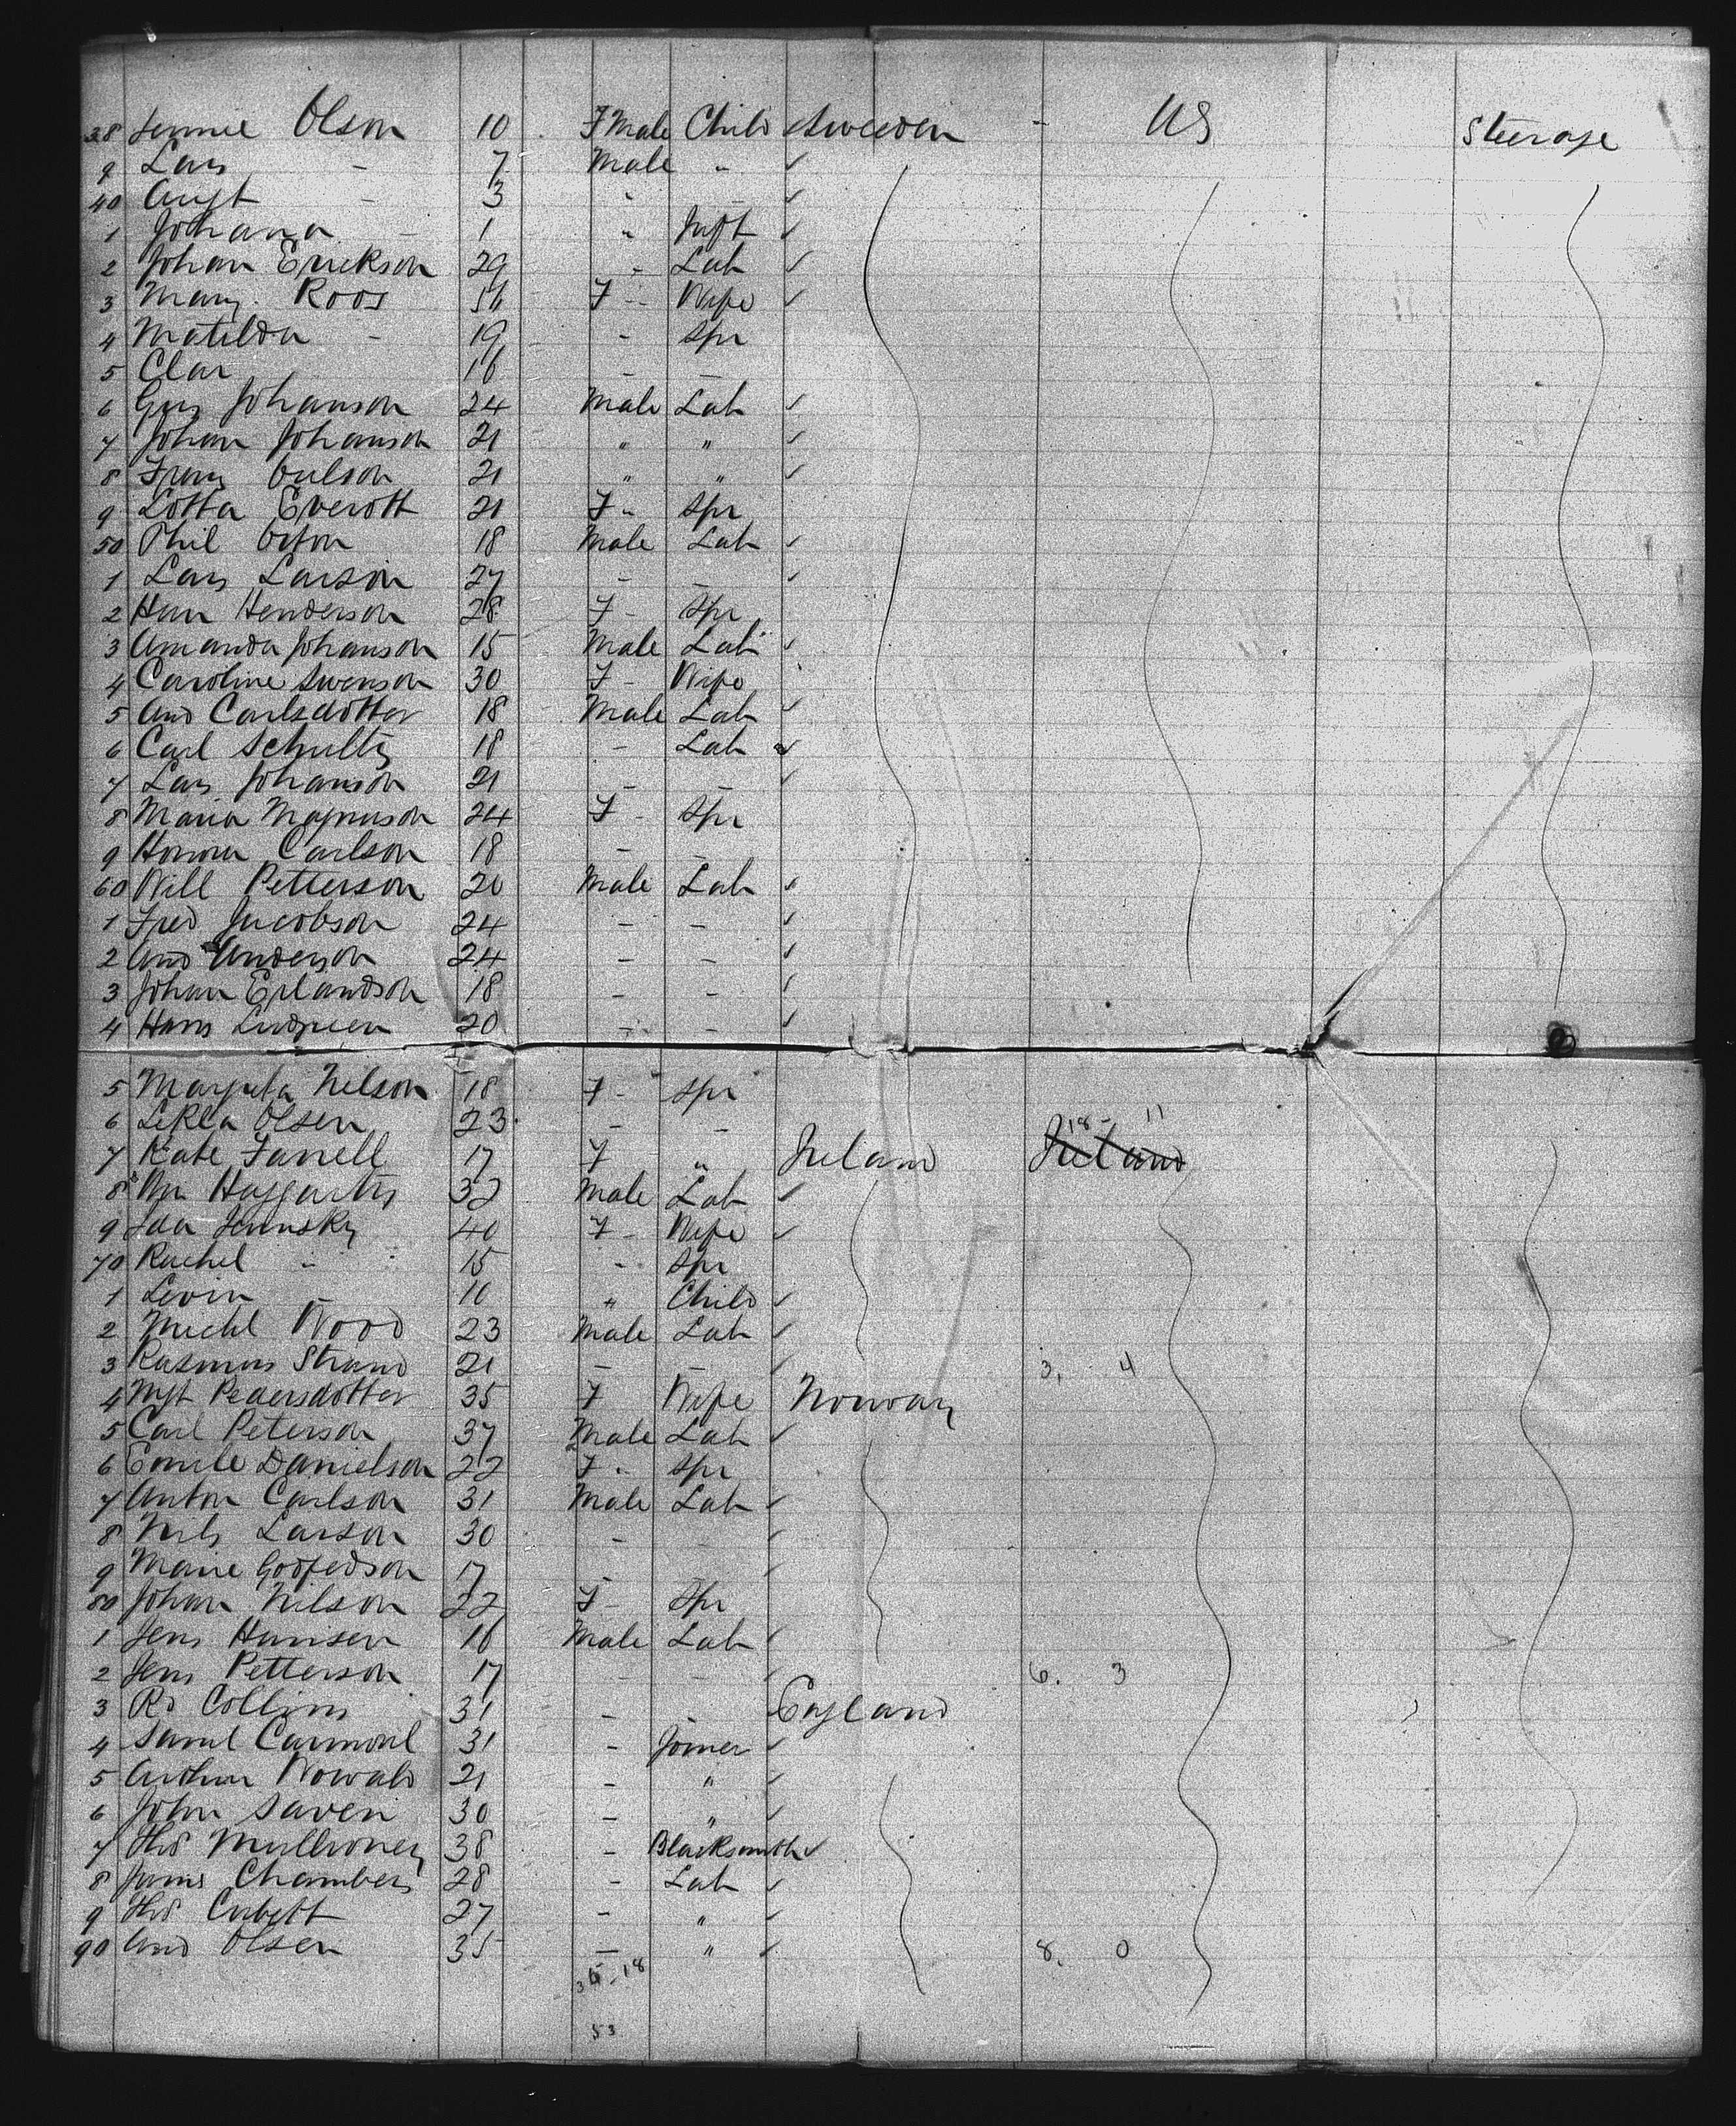 38 Jennie Olson 10 FMale Child Sweeden - US Steerage
9 Lars - 7 Male " ✓
40 Augt - 3 " - ✓
1 Johana - 1 " Inft ✓
2 Johan Erickson 29 " Lab ✓
3 Mary Roos 56 F - Wife ✓
4 Matilda - 19 - Spr
5 Clar 16 - -
6 Gus Johanson 24 Male Lab ✓
7 Johan Johanson 21 " " ✓
8 Franz 21 " " ✓
9 Lotta Everott 21 F " Spr
50 Phil 18 Male Lab ✓
1 Lars Larson 27 - - ✓
2 Han Henderson 28 F - Spr
3 Amanda Johanson 15 Male Lab ✓
4 Caroline Swenson 30 F - Wife
5 And Carlsdotter 18 Male Lab ✓
6 Carl Schultz 18 - Lab ✓
7 Lars Johanson 21 - - ✓
8 Maria Magnuson 24 F - Spr
9 Carlson 18 - -
60 Will Petterson 20 Male Lab ✓
1 Fred Jacobson 24 - - ✓
2 And Anderson 24 - - ✓
3 Johan Erlandson 18 - - ✓
4 Hans 20 - - ✓
5 Margreta Nelson 18 F - Spr
6 Olsen 23 - - 18 - 11
7 Kate Farrell 17 F " Ireland Ireland
8 Wm Haggarty 32 Male Lab ✓
9 Ida 40 F - Wife ✓
70 Rachel - 15 - Spr
1 Levin - 10 " Child ✓
2 Michl Wood 23 Male Lab ✓
3 Rasmus Strand 21 - - ✓ 3. 4
4 Pedersdotter 35 F Wife Norway
5 Carl Peterson 37 Male Lab ✓
6 Emile Danielson 22 F " Spr
7 Anton Carlson 31 Male Lab ✓
8 Nils Larson 30 - ✓
9 Marie 17 - - ✓
80 Johan Nilson 22 F - Spr
1 Jens Hansen 16 Male Lab ✓
2 Jens Petterson 17 - - ✓ 6. 3
3 Rd Collins 31 - - England
4 Saml 31 - Joiner ✓
5 Arthur 21 - " ✓
6 John 30 - " ✓
7 Thos 38 - Blacksmith ✓
8 James Chambers 28 - Lab ✓
9 Thos 27 - " ✓
90 And Olsen 35 - " ✓ 8. 0
18
53